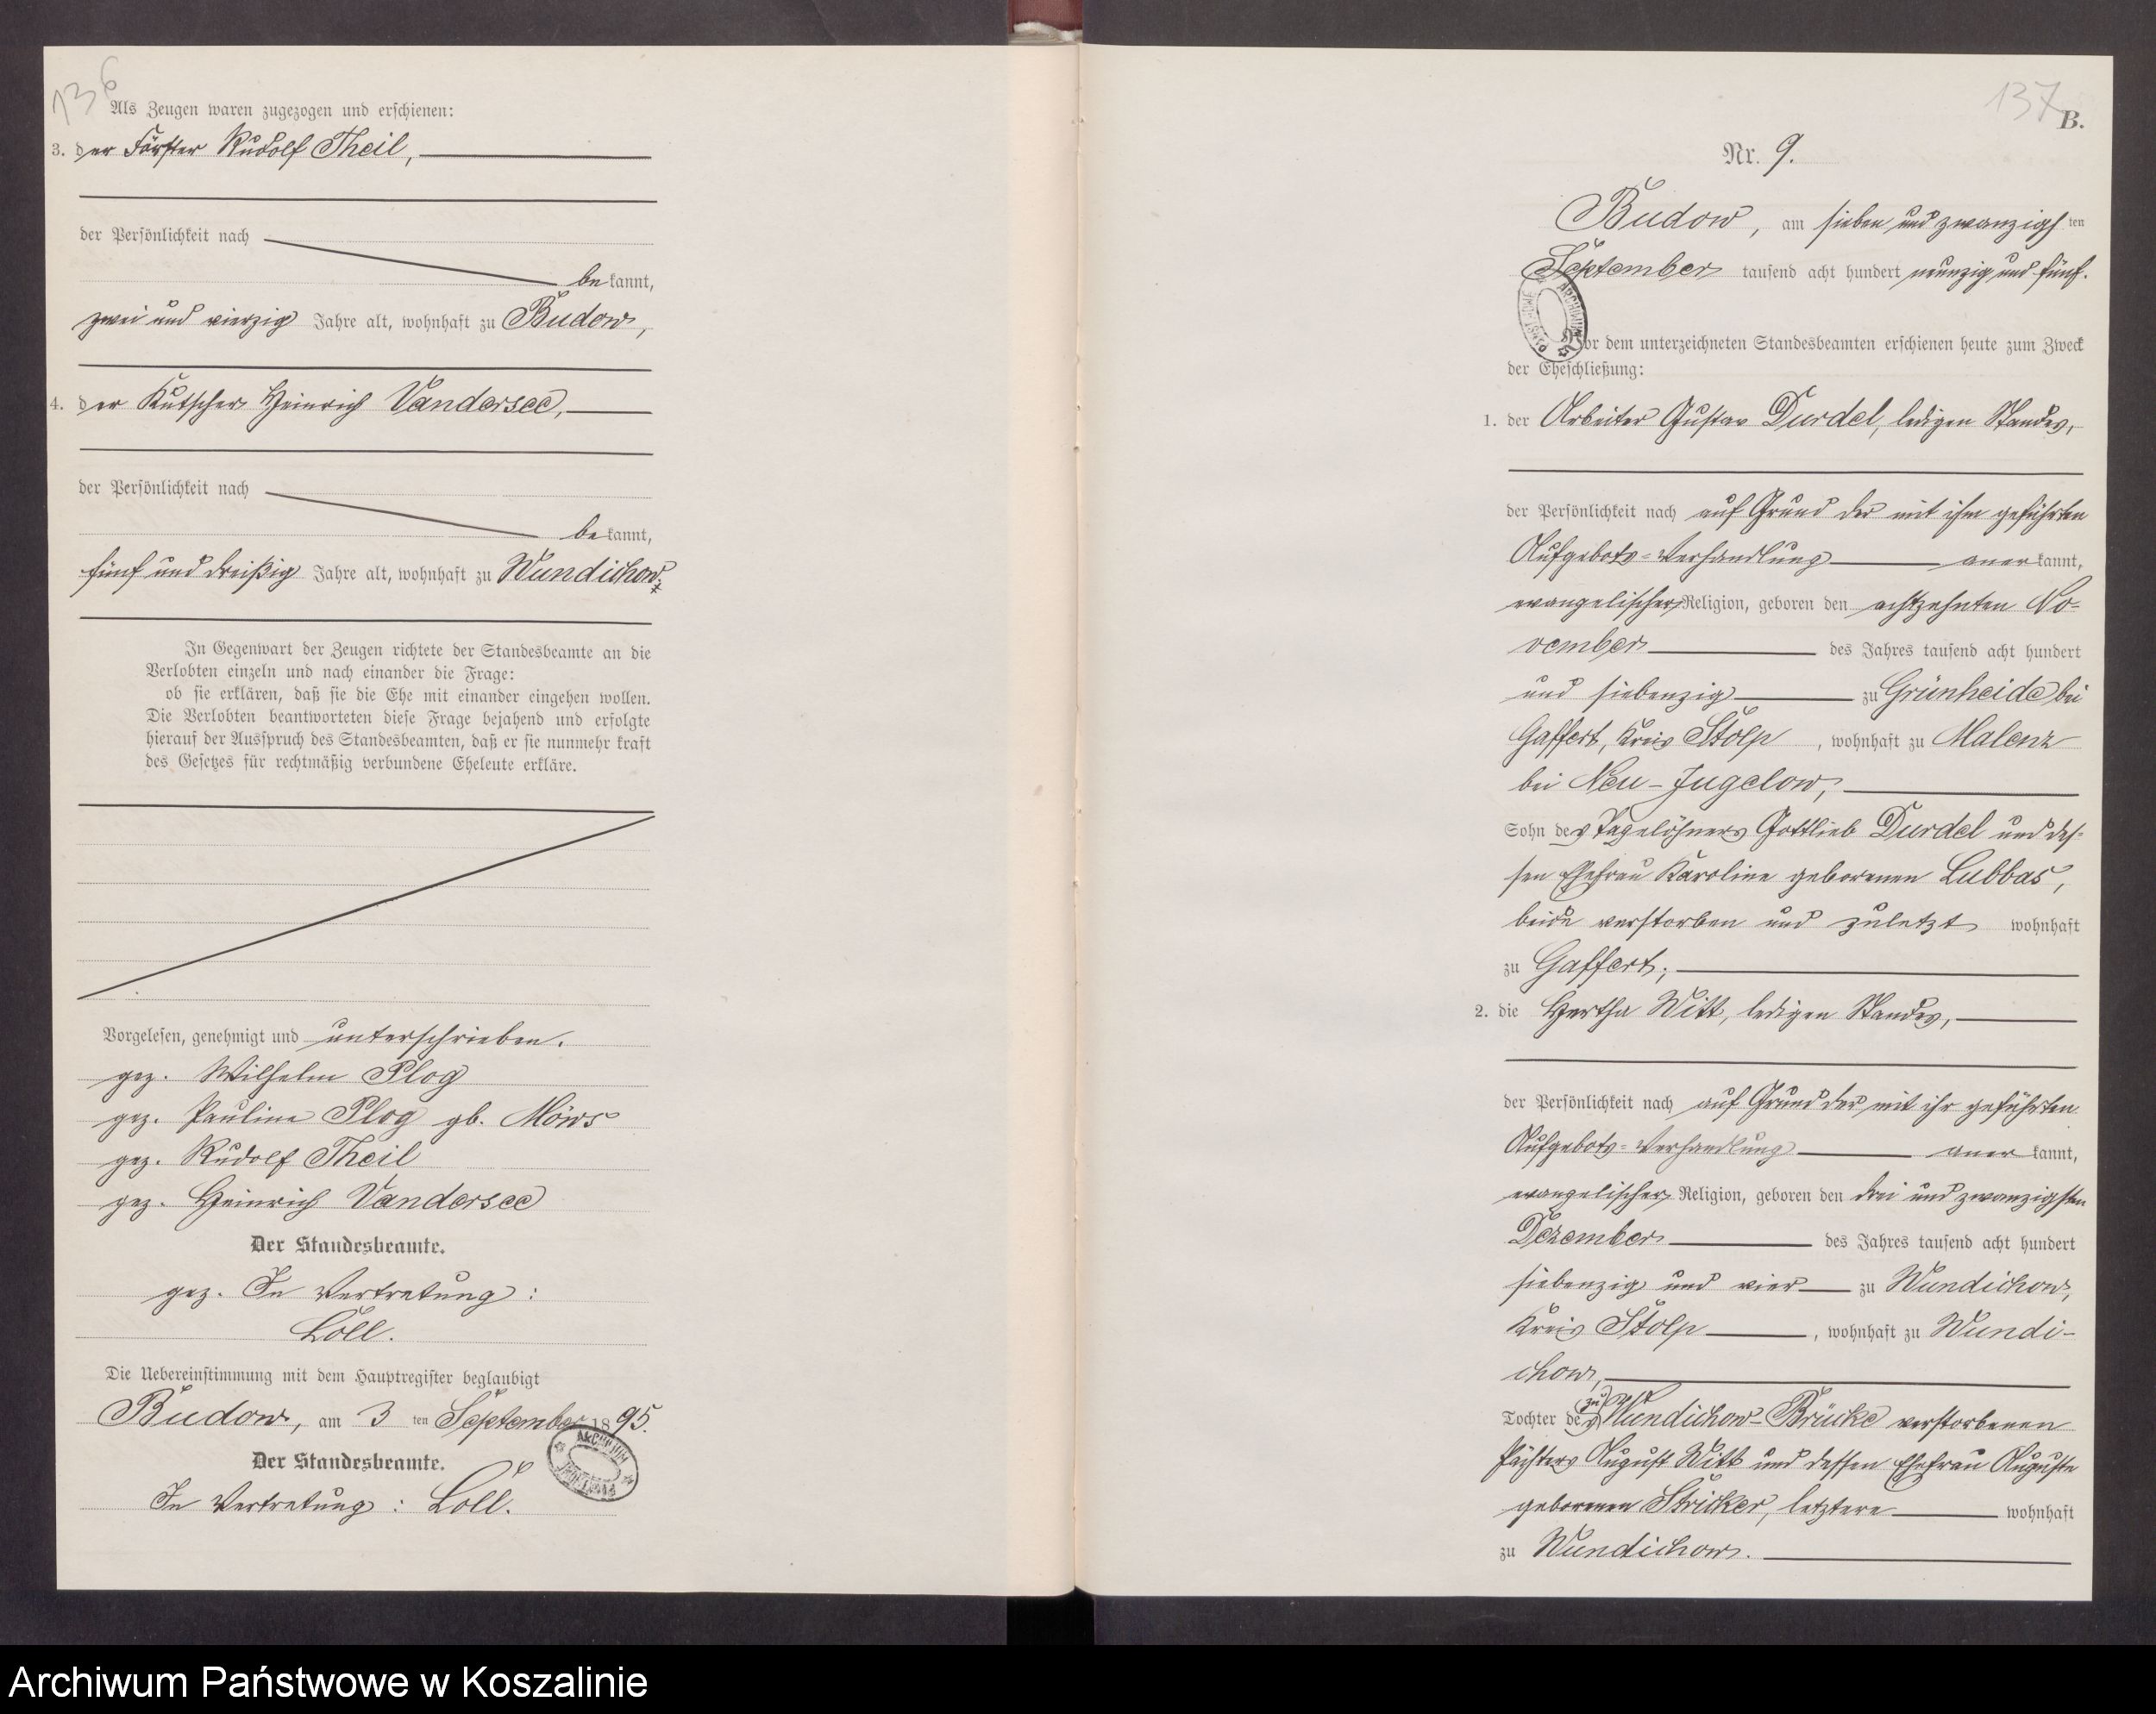 136
Als Zeugen waren zugezogen und erschienen:
3. der Förster Rudolf Theil,
der Persönlichkeit nach
bekannt,
zwei und vierzig Jahre alt, wohnhaft zu Budow,
4. der Kutscher Heinrich Vandersee,
der Persönlichkeit nach
bekannt,
fünf und dreißig Jahre alt, wohnhaft zu Wundichow.
In Gegenwart der Zeugen richtete der Standesbeamte an die
Verlobten einzeln und nach einander die Frage:
ob sie erklären, daß sie die Ehe mit einander eingehen wollen.
Die Verlobten beantworteten diese Frage bejahend und erfolgte
hierauf der Ausspruch des Standesbeamten, daß er sie nunmehr kraft
des Gesetzes für rechtmäßig verbundene Eheleute erkläre.
Vorgelesen, genehmigt und unterschrieben.
gez. Wilhelm Plog
gez. Pauline Plog gb. Möws
gez. Rudolf Theil
gez. Heinrich Vandersee
Der Standesbeamte.
gez. In Vertretung:
Loll.
Die Uebereinstimmung mit dem Hauptregister beglaubigt
Budow, am 3 ten September 1895.
Der Standesbeamte.
In Vertretung: Loll.
137
B.
Nr. 9.
Budow, am sieben und zwanzigsten
September tausend acht hundert neunzig und fünf.
Vor dem unterzeichneten Standesbeamten erschienen heute zum Zweck
der Eheschließung:
1. der Arbeiter Gustav Durdel, ledigen Standes,
der Persönlichkeit nach auf Grund der mit ihm geführten
Aufgebots-Verhandlung anerkannt,
evangelischer Religion, geboren den achtzehnten No-
vember des Jahres tausend acht hundert
und siebenzig zu Grünheide bei
Gaffert, Kreis Stolp, wohnhaft zu Malenz
bei Neu-Jugelow,
Sohn des Tagelöhners Gottlieb Durdel und des-
sen Ehefrau Karoline geborenen Lubbas,
beide verstorben und zuletzt wohnhaft
zu Gaffert;
2. die Hertha Witt, ledigen Standes,
der Persönlichkeit nach auf Grund der mit ihr geführten
Aufgebots-Verhandlung anerkannt,
evangelischer Religion, geboren den drei und zwanzigsten
Dezember des Jahres tausend acht hundert
siebenzig und vier zu Wundichow,
Kreis Stolp, wohnhaft zu Wundi-
chow,
Tochter des zu Wundichow-Brücke verstorbenen
Pächters August Witt und dessen Ehefrau Auguste
geborenen Stricker, letztere wohnhaft
zu Wundichow.
Archiwum Państwowe w Koszalinie